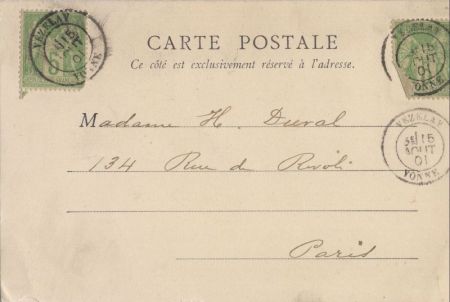 VEZELAY
15
AOUT
01
YONNE
CARTE POSTALE
Ce côté est exclusivement réservé à l'adresse.
VEZELAY
15
AOUT
01
YONNE
Madame H. Duval
134 Rue de Rivoli
Paris
VEZELAY
5E 15
AOUT
01
YONNE